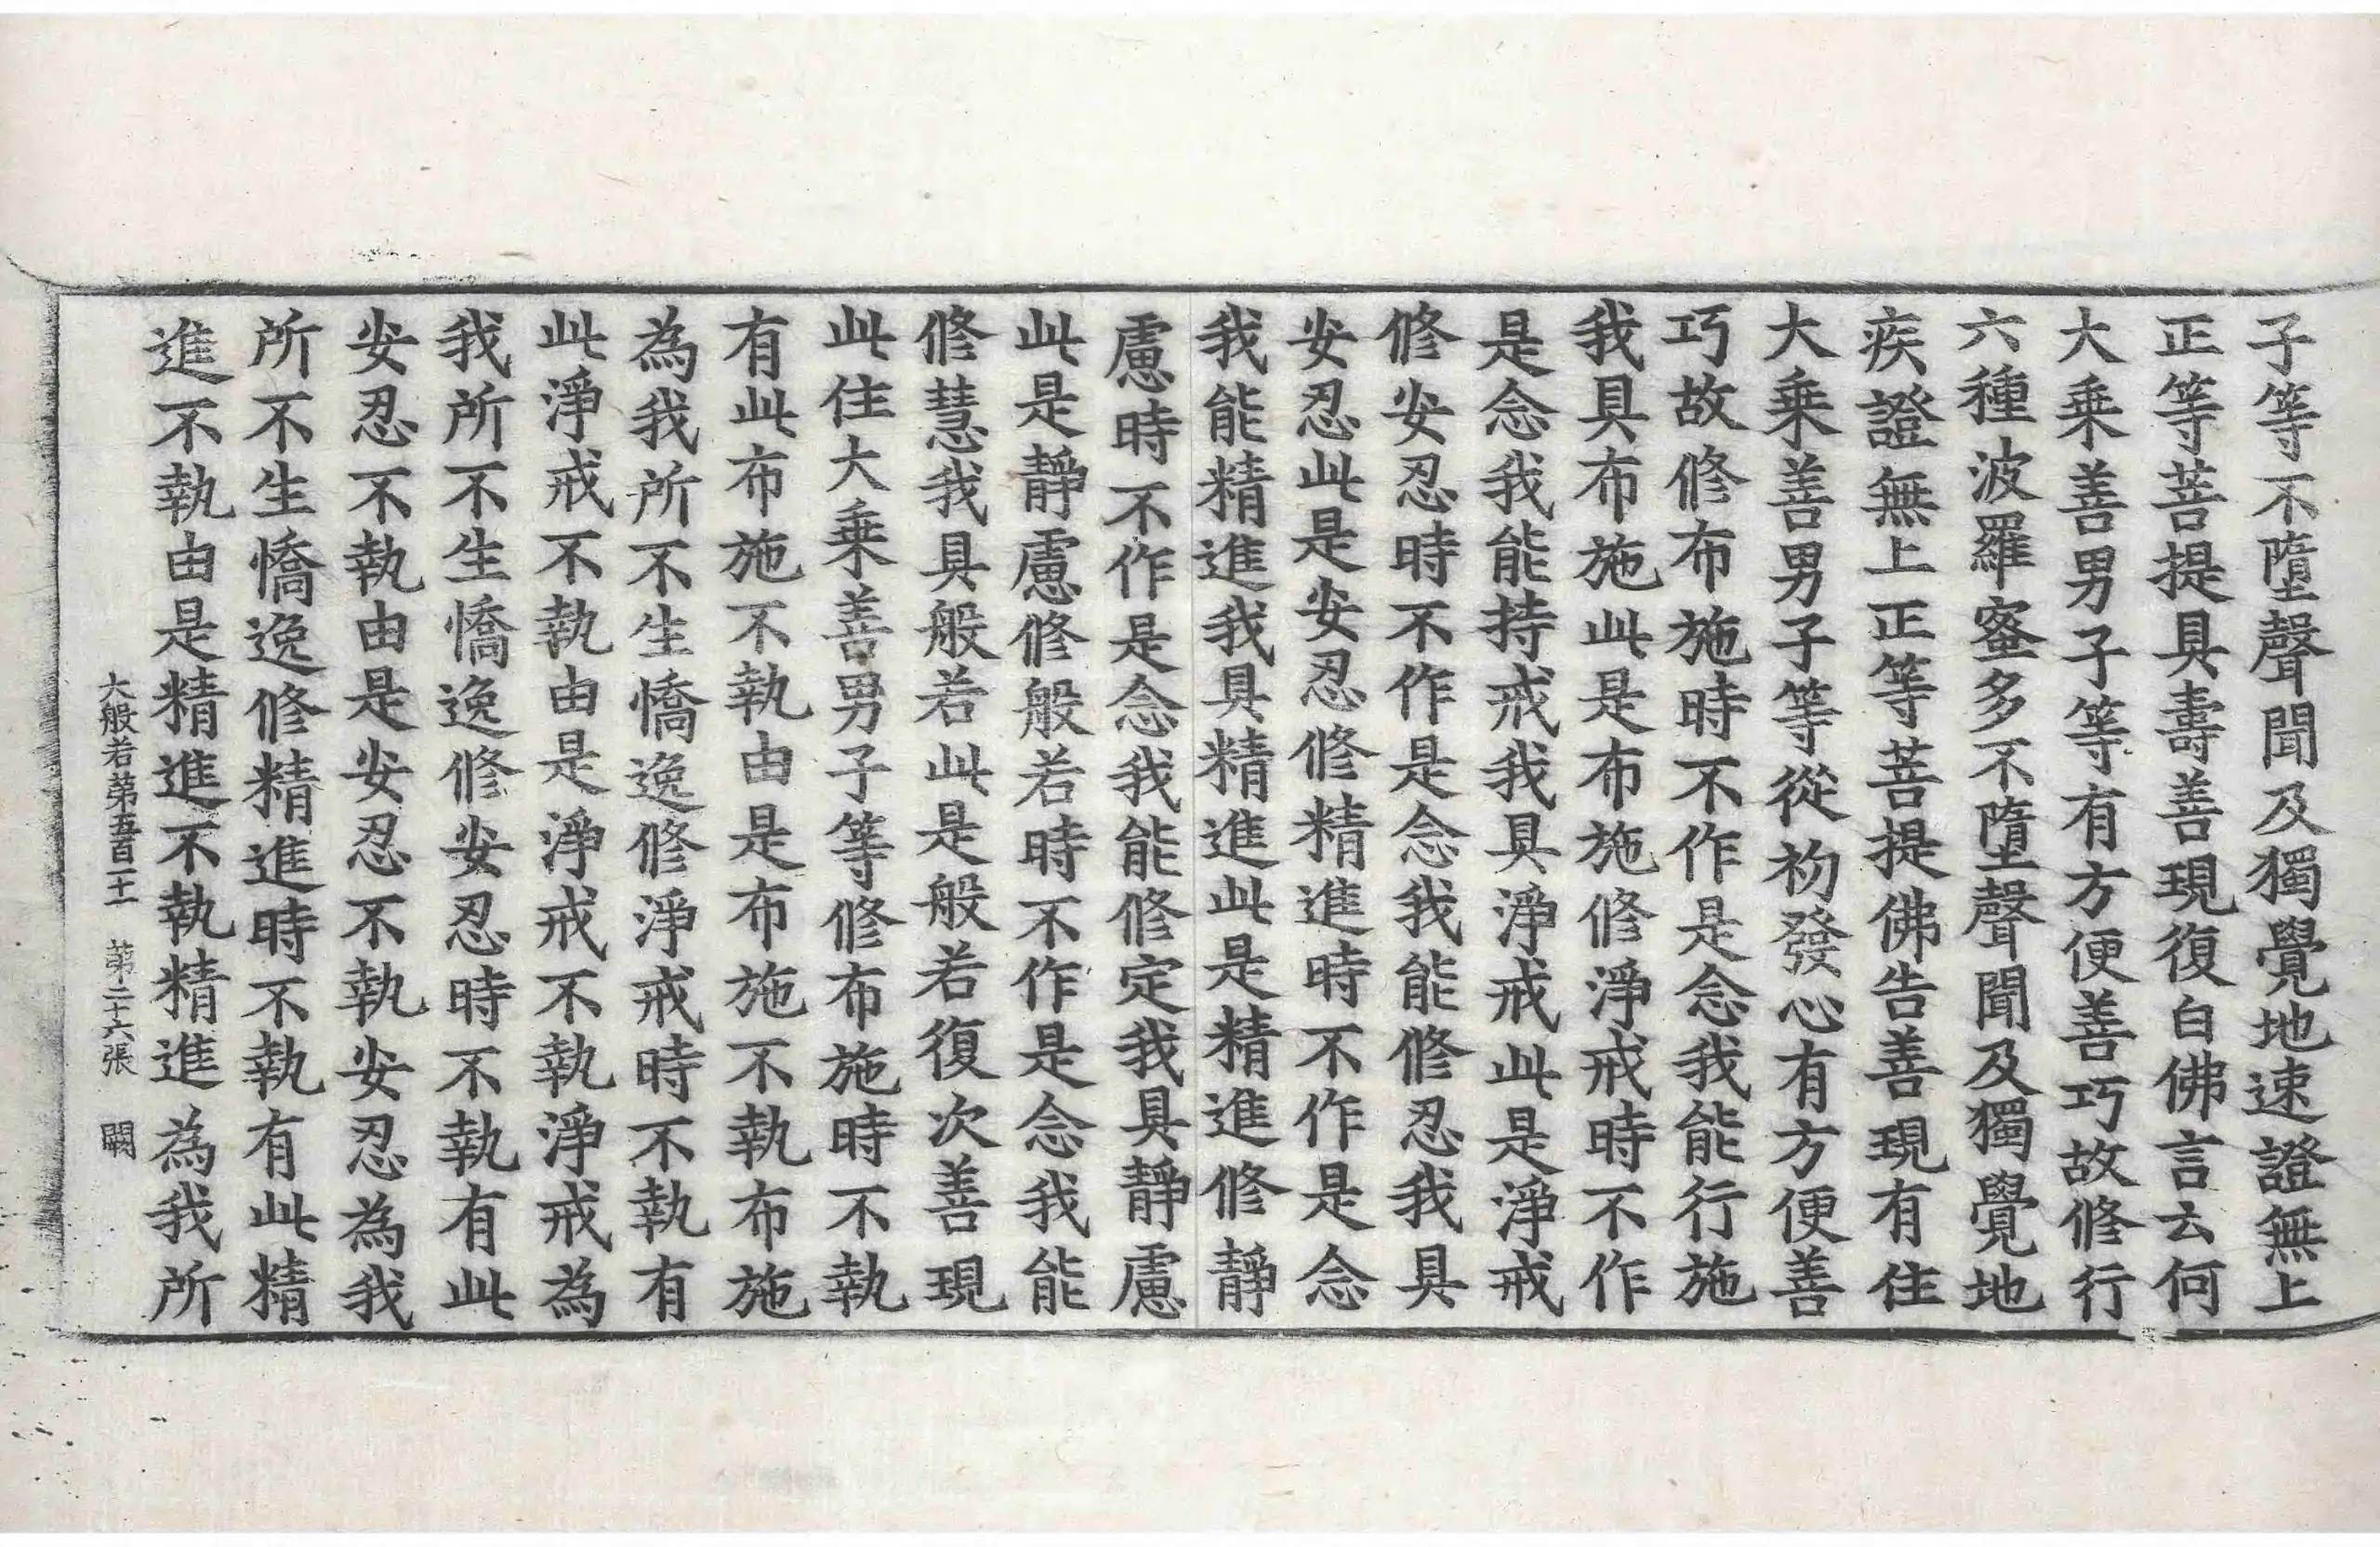 子等不墮聲聞及獨覺地速證無上
正等菩提具壽善現復白佛言云何
大乗善男子等有方便善巧故修行
六種波羅蜜多不墮聲聞及獨覺地
疾證無上正等菩提佛告善現有住
大乗善男子等從初發心有方便善
巧故修布施時不作是念我能行施
我具布施此是布施修淨戒時不作
是念我能持戒我具淨戒此是淨戒
修安忍時不作是念我能修忍我具
安忍此是安忍修精進時不作是念
我能精進我具精進此是精進修靜
慮時不作是念我能修定我具靜慮
此是靜慮修般若時不作是念我能
修慧我具般若此是般若復次善現
此住大乗善男子等修布施時不執
有此布施不執由是布施不執布施
為我所不生憍逸修淨戒時不執有
此淨戒不執由是淨戒不執淨戒為
我所不生憍逸修安忍時不執有此
安忍不執由是安忍不執安忍為我
所不生憍逸修精進時不執有此精
進不執由是精進不執精進為我所
大般若第五百二十一 第二十六張 闕